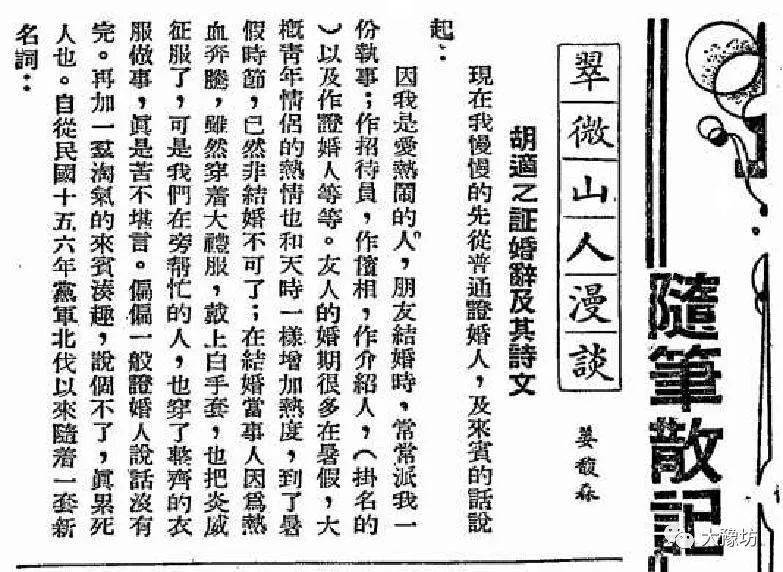 隨筆散記
翠微山人漫談
姜馥森
胡適之証婚辭及其詩文
現在我慢慢的先從普通證婚人，及來賓的話說
起：
因我是愛熱鬧的人，朋友結婚時，常常派我一
份執事；作招待員，作儐相，作介紹人，（掛名的
）以及作證婚人等等。友人的婚期很多在暑假，大
概靑年情侶的熱情也和天時一樣增加熱度，到了暑
假時節，已然非結婚不可了；在結婚當事人因爲熱
血奔騰，雖然穿着大禮服，戴上白手套，也把炎威
征服了，可是我們在旁幫忙的人，也穿了整齊的衣
服做事，眞是苦不堪言。偏偏一般證婚人說話沒有
完。再加一羣淘氣的來賓湊趣，說個不了，眞累死
人也。自從民國十五六年黨軍北伐以來隨着一套新
名詞：
大豫坊